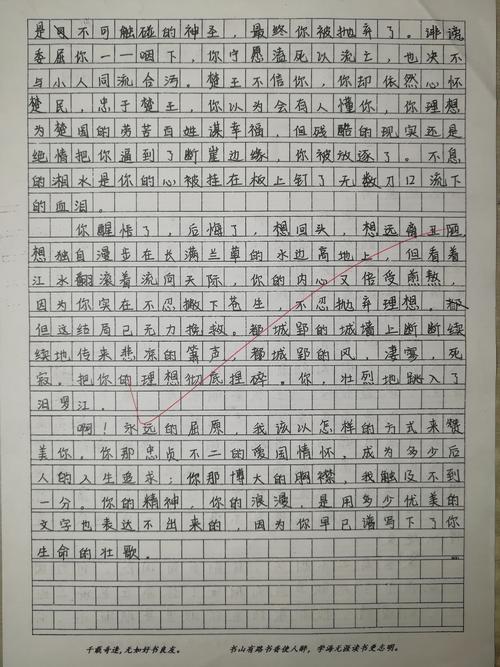 是风不可触碰的神圣，最终你被抛弃了。诽谤
委屈你一一咽下，你宁愿溘死以流亡，也决不
与小人同流合污。楚王不信你，你却依然心怀
楚民，忠于楚王，你以为会有人懂你，你理想
为楚国的劳苦百姓谋幸福，但残酷的现实还是
绝情把你逼到了断崖边缘，你被放逐了。不息
的湘水是你的心被挂在板上钉了无数刀口流下
的血泪。
你醒悟了，后悔了，想回头，想远离丑陋
想独自漫步在长满兰草的水边高地上，但看着
江水翻滚着流向天际，你的内心又倍受煎熬，
因为你实在不忍撇下苍生，不忍抛弃理想。都
但这结局已无力挽救。都城郢的城墙上断断续
续地传来悲凉的箫声，都城郢的风，凄鸾，死
寂。把你的理想彻底捏碎。你，壮烈地跳入了
汨罗江。
啊！永远的屈原，我该以怎样的方式来赞
美你。你那忠贞不二的爱国情怀，成为多少后
人的人生追求；你那博大的胸襟，我触及不到
一分。你的精神，你的浪漫，是用多少优美的
文字也表达不出来的，因为你早已谱写下了你
生命的壮歌。
千载奇逢，无如好书良友。 书山有路书香使人醉，学海无涯读书更志明。